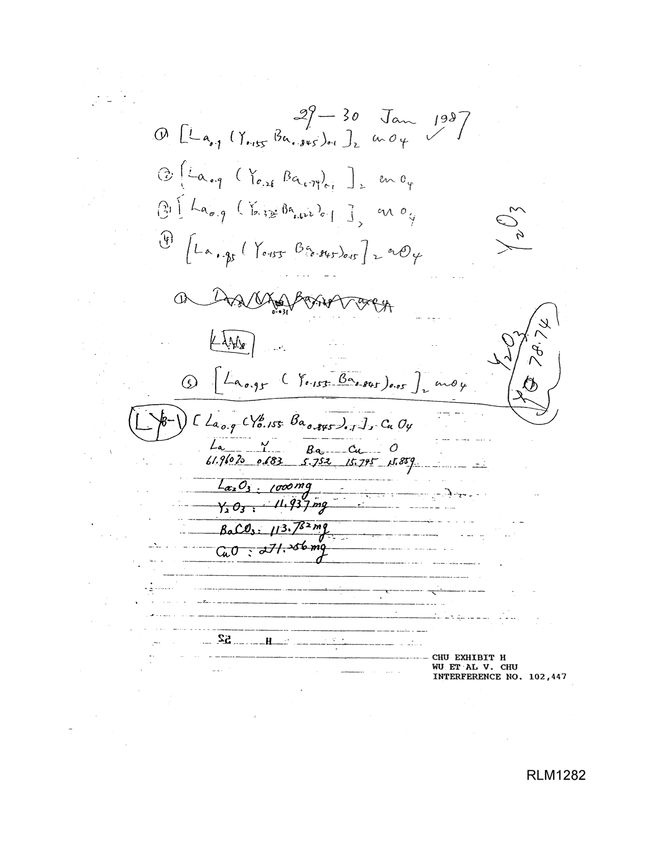 29 — 30 Jan 1987
① [La0.9 (Y0.155 Ba0.845)0.1]2 CuO4 ✓
② [La0.9 (Y0.26 Ba0.74)0.1]2 CuO4
③ [La0.9 (Y Ba )0.1]2 CuO4
Y2O3
④ [La0.85 (Y0.155 Ba0.845)0.15]2 CuO4
Y2O3
78.74
⑤ [La0.95 (Y0.155 Ba0.845)0.05]2 CuO4
[La0.9 (Y0.155 Ba0.845)0.1]2 CuO4
La Y Ba Cu O
61.960% 0.683 5.752 15.745 15.859
La2O3: 1000mg
Y2O3: 11.937mg
BaCO3: 113.782mg
CuO: 271.256mg
52 H
CHU EXHIBIT H
WU ET AL V. CHU
INTERFERENCE NO. 102,447
RLM1282